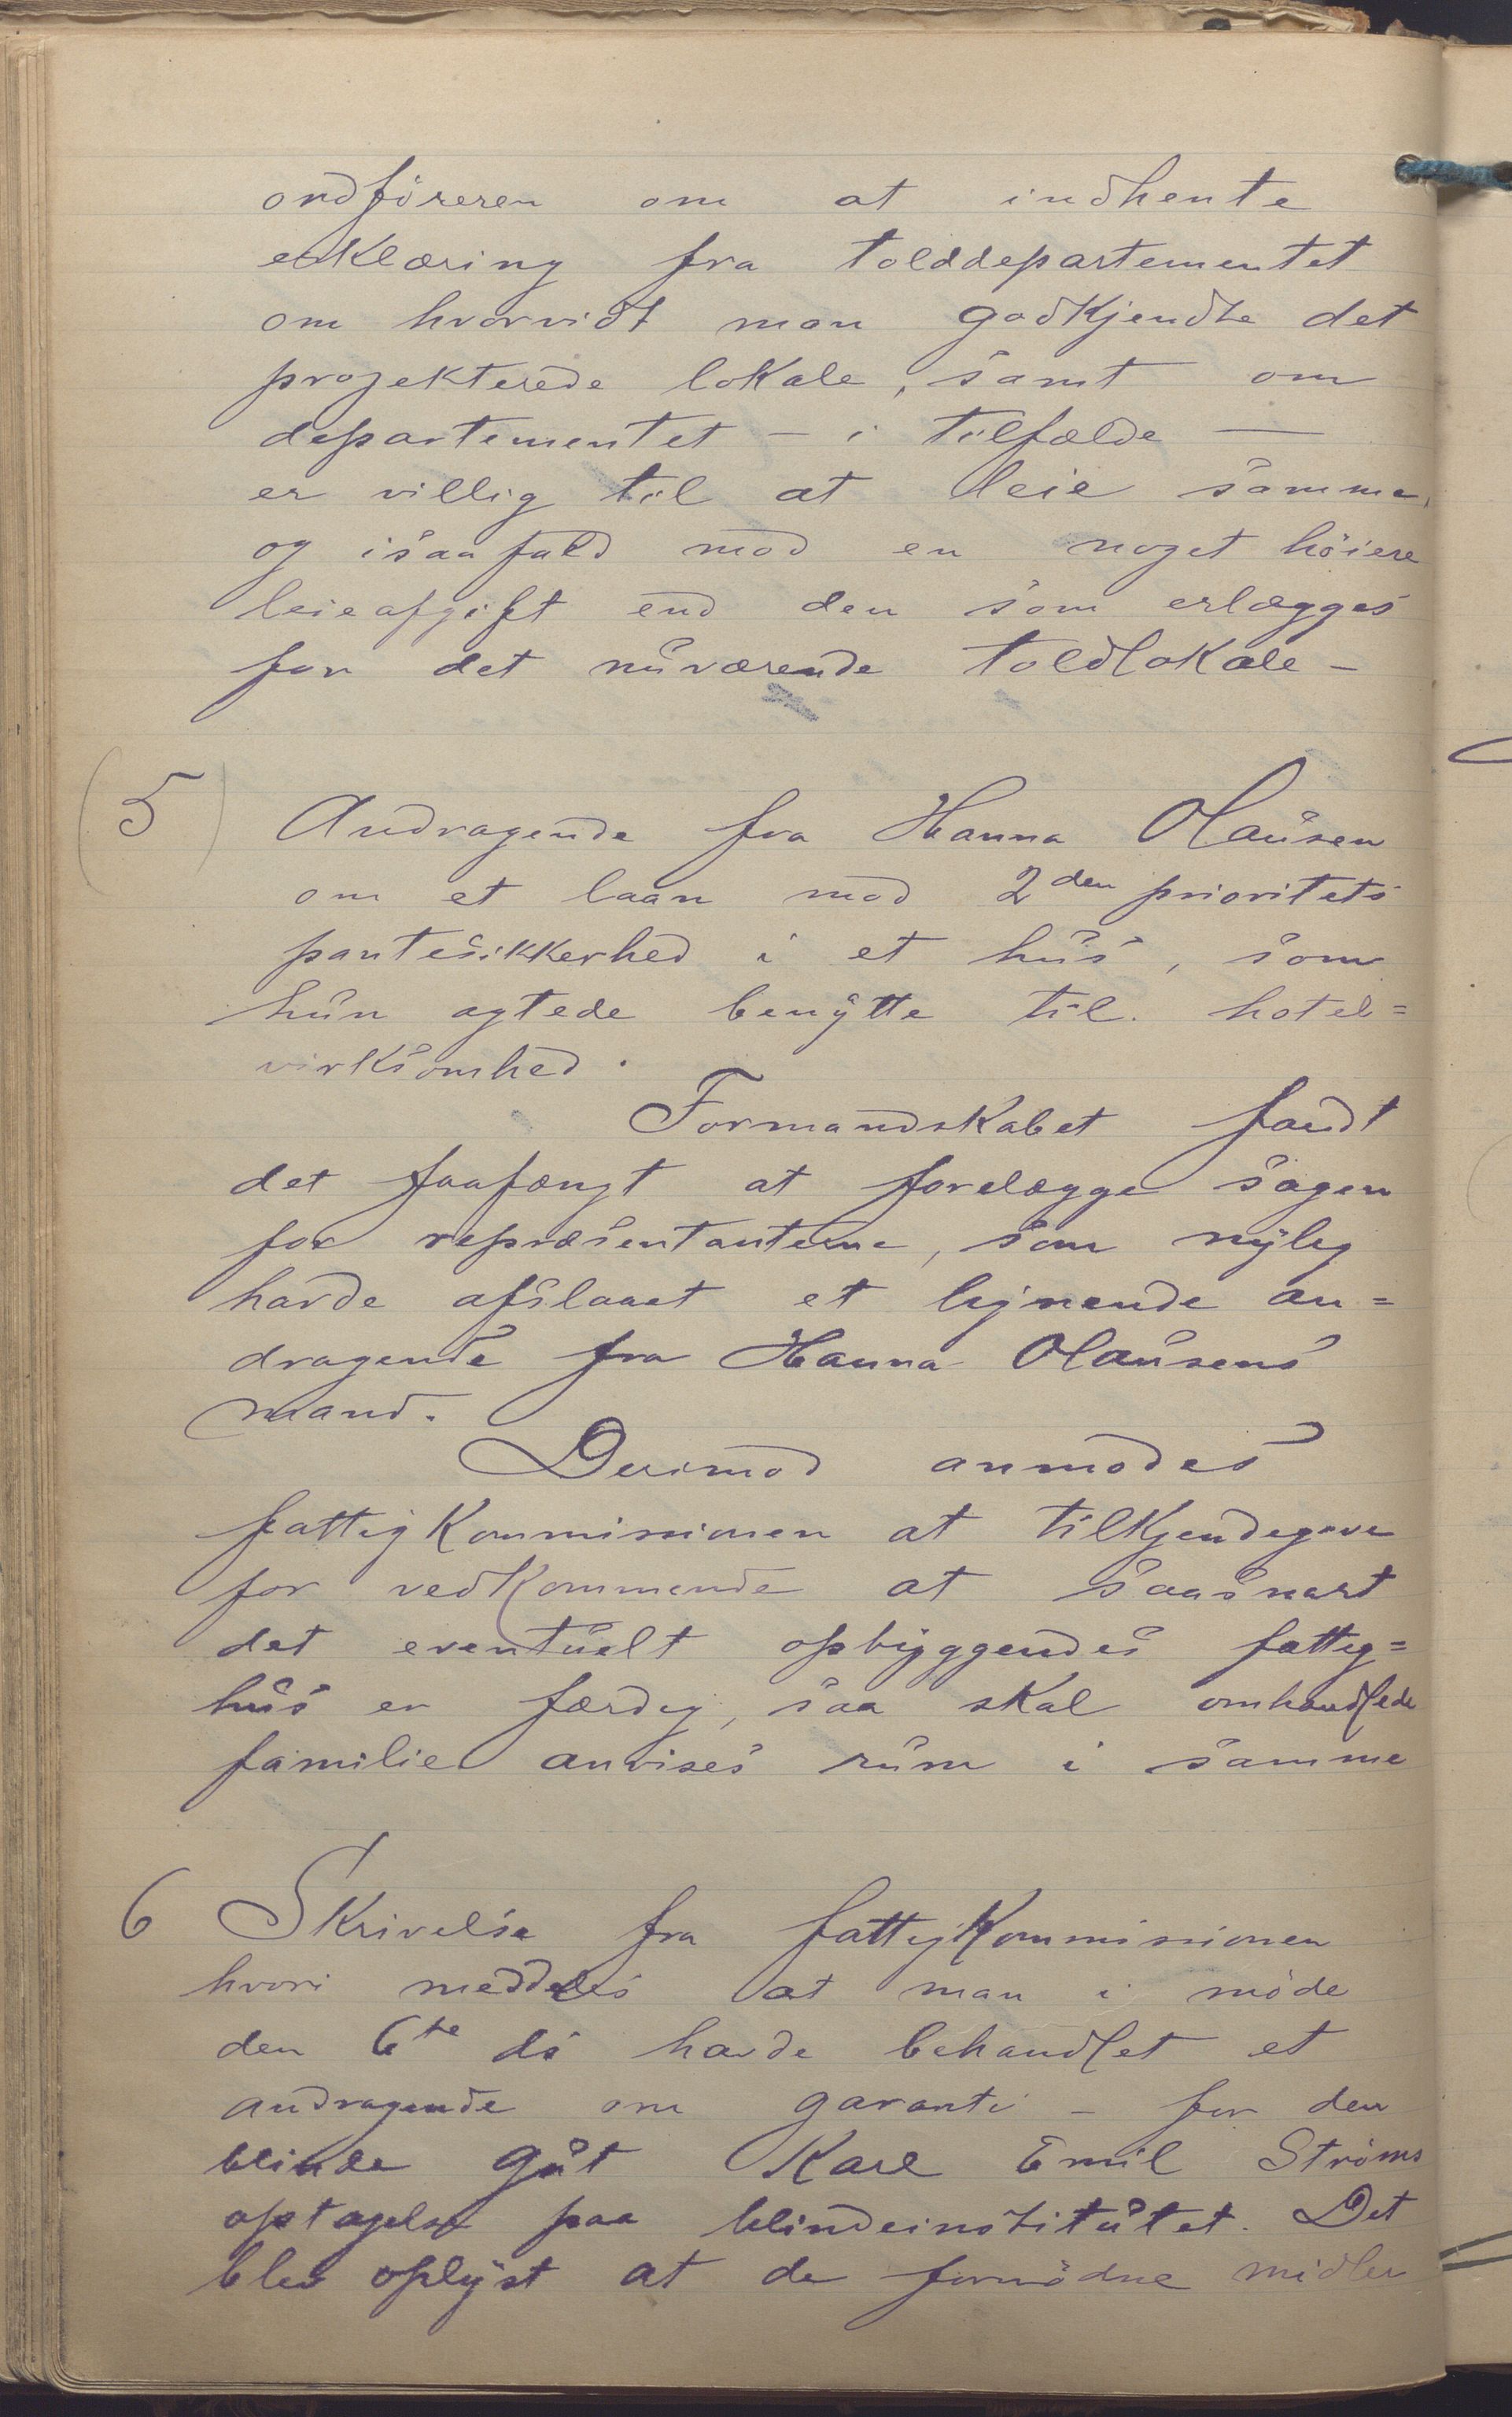 ordföreren om at indhente
erklæring fra tolddepartementet
om hvorvidt man godkjendte det
projekterede lokale, samt om
departementet – i tilfælde –
er villig til at leie samme,
og isaafald mod en noget höiere
leieafgift end den som erlægges
for det nuværende toldlokale –
(5) Andragende fra Hanna Olausen
om et laan mod 2den prioritets
pantesikkerhed i et hus, som
hun agtede benytte til hotel=
virksomhed.
Formandskabet fandt
det faafængt at forelægge sagen
for repræsentanterne, som nylig
havde afslaaet et lignende an=
dragende fra Hanna Olausens
mand.
Derimod anmodes
fattigkommissionen at tilkjendegive
for vedkommende at saasnart
det eventuelt opbyggendes fattig=
hus er færdig, saa skal omhandlede
familie anvises rum i samme
6 Skrivelse fra fattigkommissionen
hvori meddeles at man i möde
den 6te ds havde behandlet et
andragende om garanti – for den
blinde gut Karl Emil Ströms
optagelse paa blindeinstitutet. Det
blev oplyst at de fornödne midler